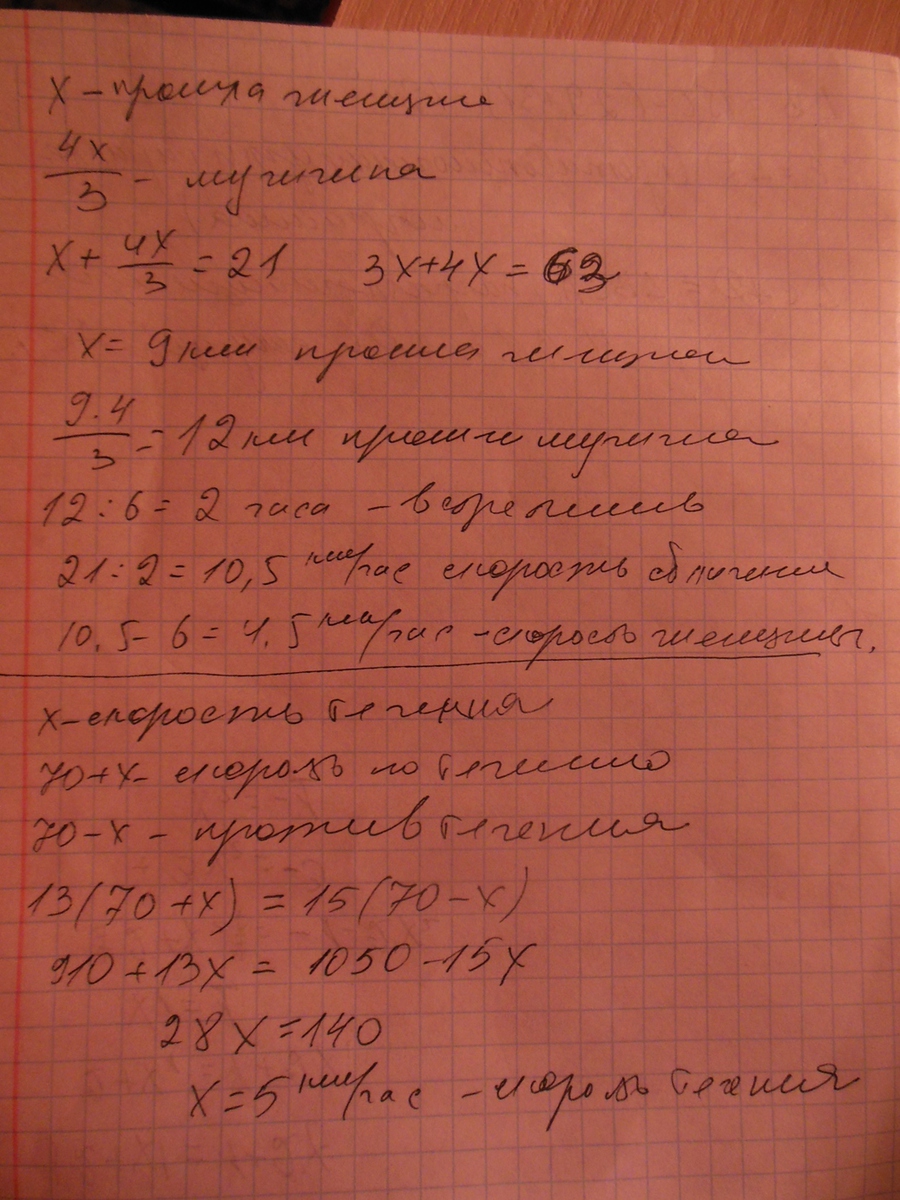 x - прошла женщина
4x/3 - мужчина
x + 4x/3 = 21 3x+4x = 63
x = 9 км прошла женщина
9·4/3 = 12 км прошел мужчина
12 : 6 = 2 часа - встретились
21 : 2 = 10,5 км/час скорость сближения
10.5 - 6 = 4.5 км/час - скорость женщины.
x - скорость течения
70+x - скорость по течению
70-x - против течения
13(70+x) = 15(70-x)
910+13x = 1050-15x
28x = 140
x = 5 км/час - скорость течения